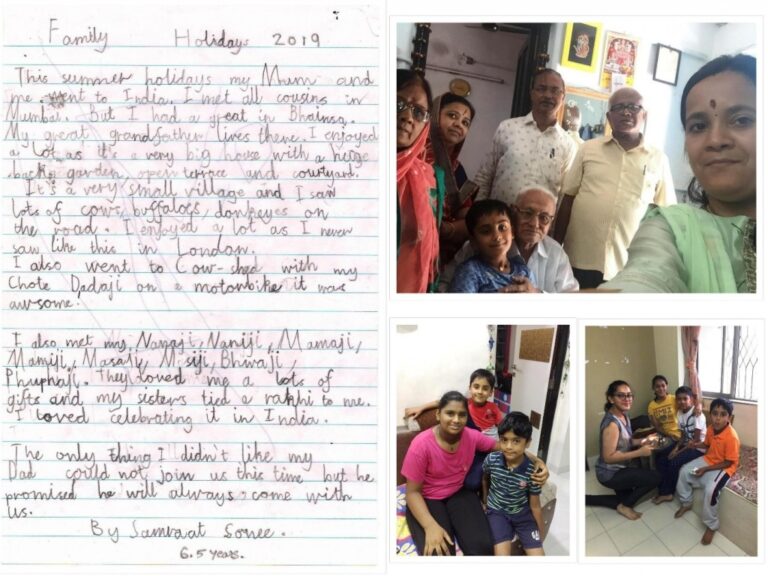 Family Holidays 2019
This summer holidays my Mum and
me went to India. I met all cousins in
Mumbai. But I had a great in Bhainsa.
My great grandfather lives there. I enjoyed
a lot as it's a very big house with a huge
back garden, open terrace and courtyard.
It's a very small village and I saw
lots of cows, buffaloes, donkeyes on
the road. I enjoyed a lot as I never
saw like this in London.
I also went to Cow-shed with my
Chote Dadaji on a motorbike it was
awsome.
I also met my Nanaji, Naniji, Mamaji,
Mamiji, Masaji, Masiji, Bhuaji,
Phuphaji. They loved me a lots of
gifts and my sisters tied a rakhi to me.
I loved celebrating it in India.
The only thing I didn't like my
Dad could not join us this time but he
promised he will always come with
us.
By Samraat Sonee.
6.5 years.